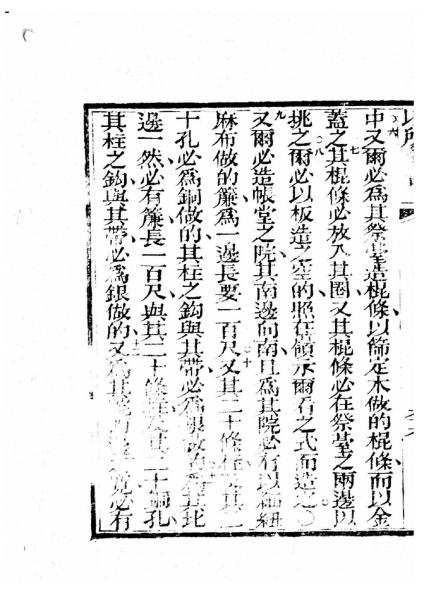 中又爾必為其祭臺造棍條以篩定木做的棍條而以金
蓋之其棍條必放入其圈又其棍條必在祭臺之兩邊以
挑之爾必以板造之空的照在嶺示爾看之式而造之〇
又爾必造帳堂之院其南邊向南且為其院必有以細紐
麻布做的簾為一邊長要一百尺又其二十條柱其二
十孔必為銅做的其柱之鈎與其帶必為銀做的為其北
邊一然必有簾長一百尺與其二十條柱其二十銅孔
其柱之鈎與其帶必為銀做的又為其院必有